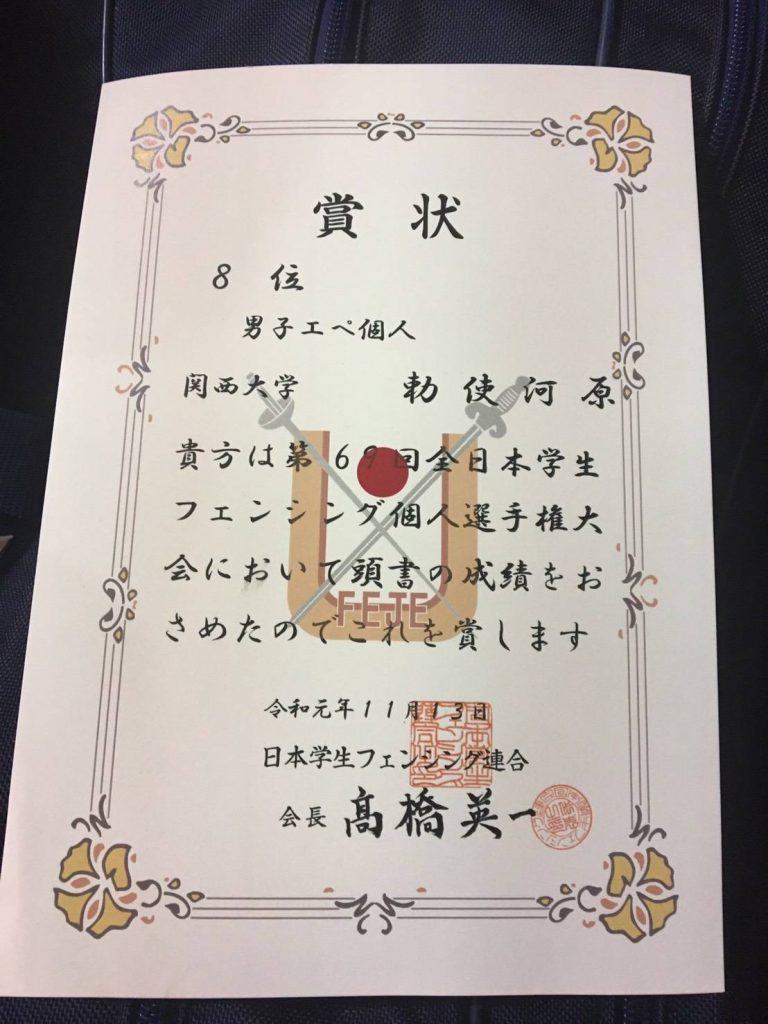 賞状
8 位
男子エペ個人
関西大学 勅使河原
貴方は第69回全日本学生
フェンシング個人選手権大
会において頭書の成績をお
さめたのでこれを賞します
FEJE
令和元年11月13日
日本学生フェンシング連合
会長 髙橋英一